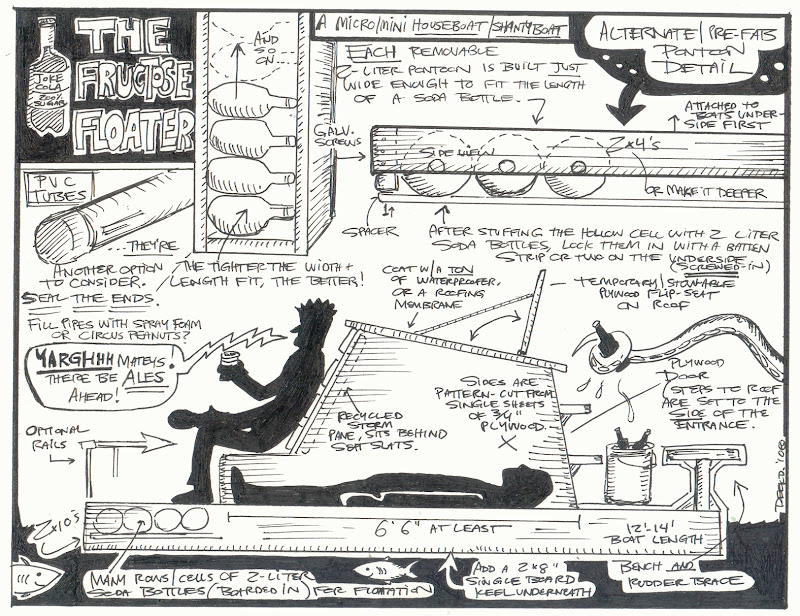 JOKE
COLA
200%
SUGAR
THE
FRUCTOSE
FLOATER
AND
SO
ON...
A MICRO/MINI HOUSEBOAT/SHANTYBOAT
EACH REMOVABLE
2-LITER PONTOON IS BUILT JUST
WIDE ENOUGH TO FIT THE LENGTH
OF A SODA BOTTLE.
ALTERNATE/PRE-FAB
PONTOON
DETAIL
ATTACHED TO
BOATS UNDER-
SIDE FIRST
GALV.
SCREWS
SIDE VIEW
2x4's
OR MAKE IT DEEPER
SPACER
AFTER STUFFING THE HOLLOW CELL WITH 2 LITER
SODA BOTTLES, LOCK THEM IN WITH A BATTEN
STRIP OR TWO ON THE UNDERSIDE
(SCREWED-IN)
PVC
TUBES
...THEY'RE
ANOTHER OPTION
TO CONSIDER.
SEAL THE ENDS.
FILL PIPES WITH SPRAY FOAM
OR CIRCUS PEANUTS?
THE TIGHTER THE WIDTH +
LENGTH FIT, THE BETTER!
COAT W/A TON
OF WATERPROOFER,
OR A ROOFING
MEMBRANE
TEMPORARY/STOWABLE
PLYWOOD FLIP-SEAT
ON ROOF
YARGHHH MATEYS!
THERE BE ALES
AHEAD!
OPTIONAL
RAILS
RECYCLED
STORM
PANE, SITS BEHIND
SEAT SLATS.
SIDES ARE
PATTERN-CUT FROM
SINGLE SHEETS
OF 3/4"
PLYWOOD.
PLYWOOD
DOOR
STEPS TO ROOF
ARE SET TO THE
SIDE OF THE
ENTRANCE.
2x10's
6' 6" AT LEAST
12'-14'
BOAT LENGTH
MANY ROWS/CELLS OF 2-LITER
SODA BOTTLES (BOARDED IN) FOR FLOATATION
ADD A 2x8"
SINGLE BOARD
KEEL UNDERNEATH
BENCH AND
RUDDER BRACE